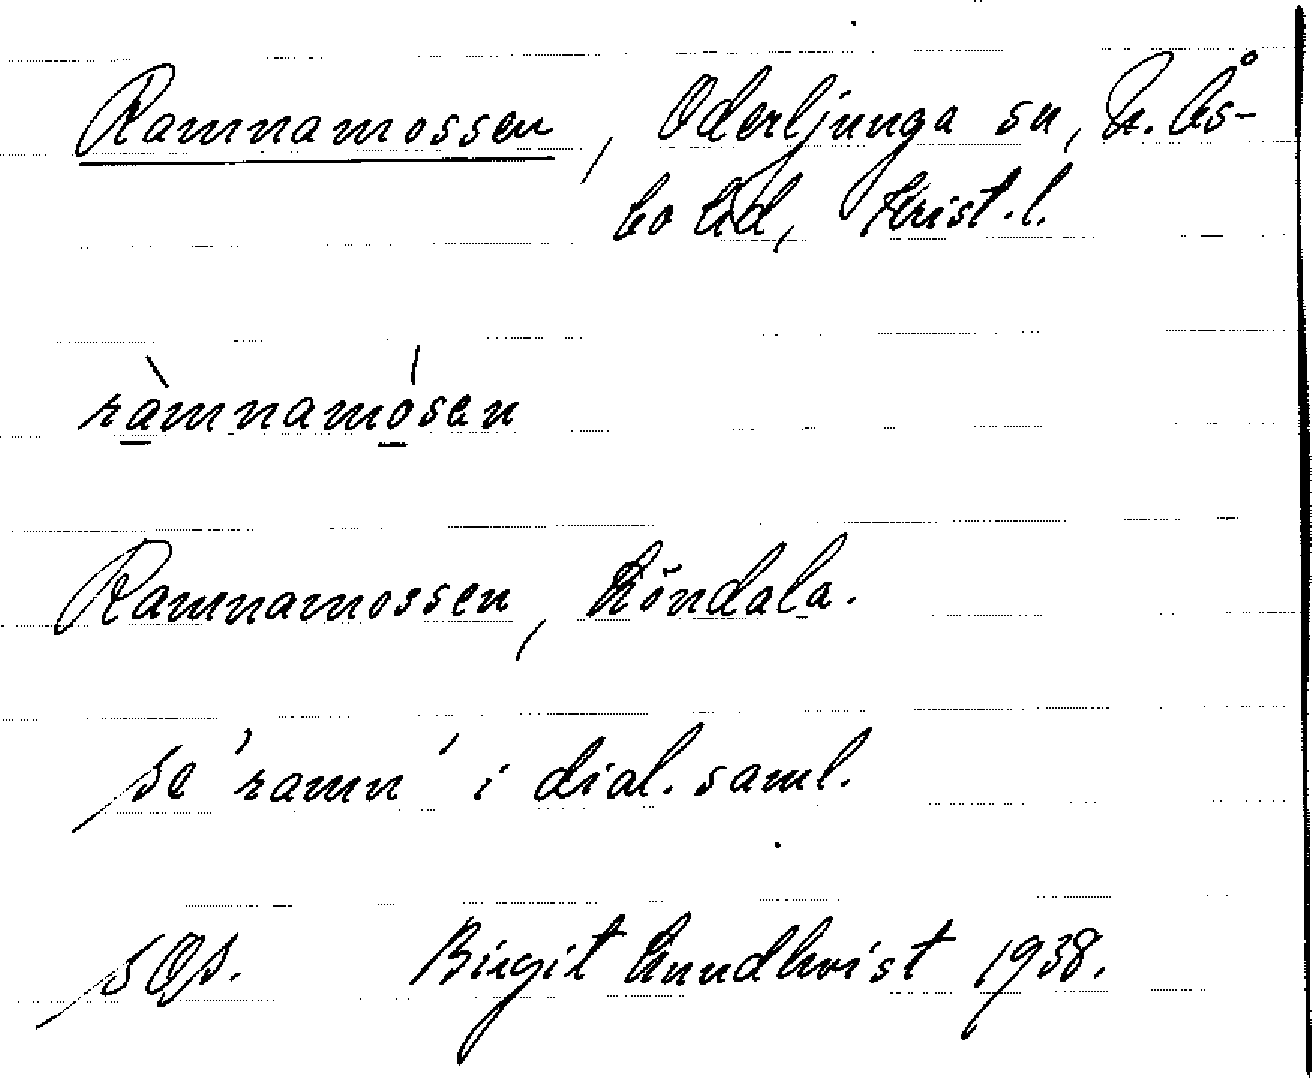 Ramnamossen, Oderljunga sn, N. Ås-
bo hd, Krist. l.
ràmnamósen
Ramnamossen, Röndala.
se 'ramn' i dial. saml.
sOp. Birgit Lundkvist 1938.